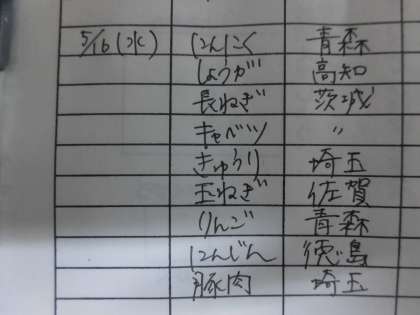 5/16(水) にんにく 青森
しょうが 高知
長ねぎ 茨城
キャベツ 〃
きゅうり 埼玉
玉ねぎ 佐賀
りんご 青森
にんじん 徳島
豚肉 埼玉